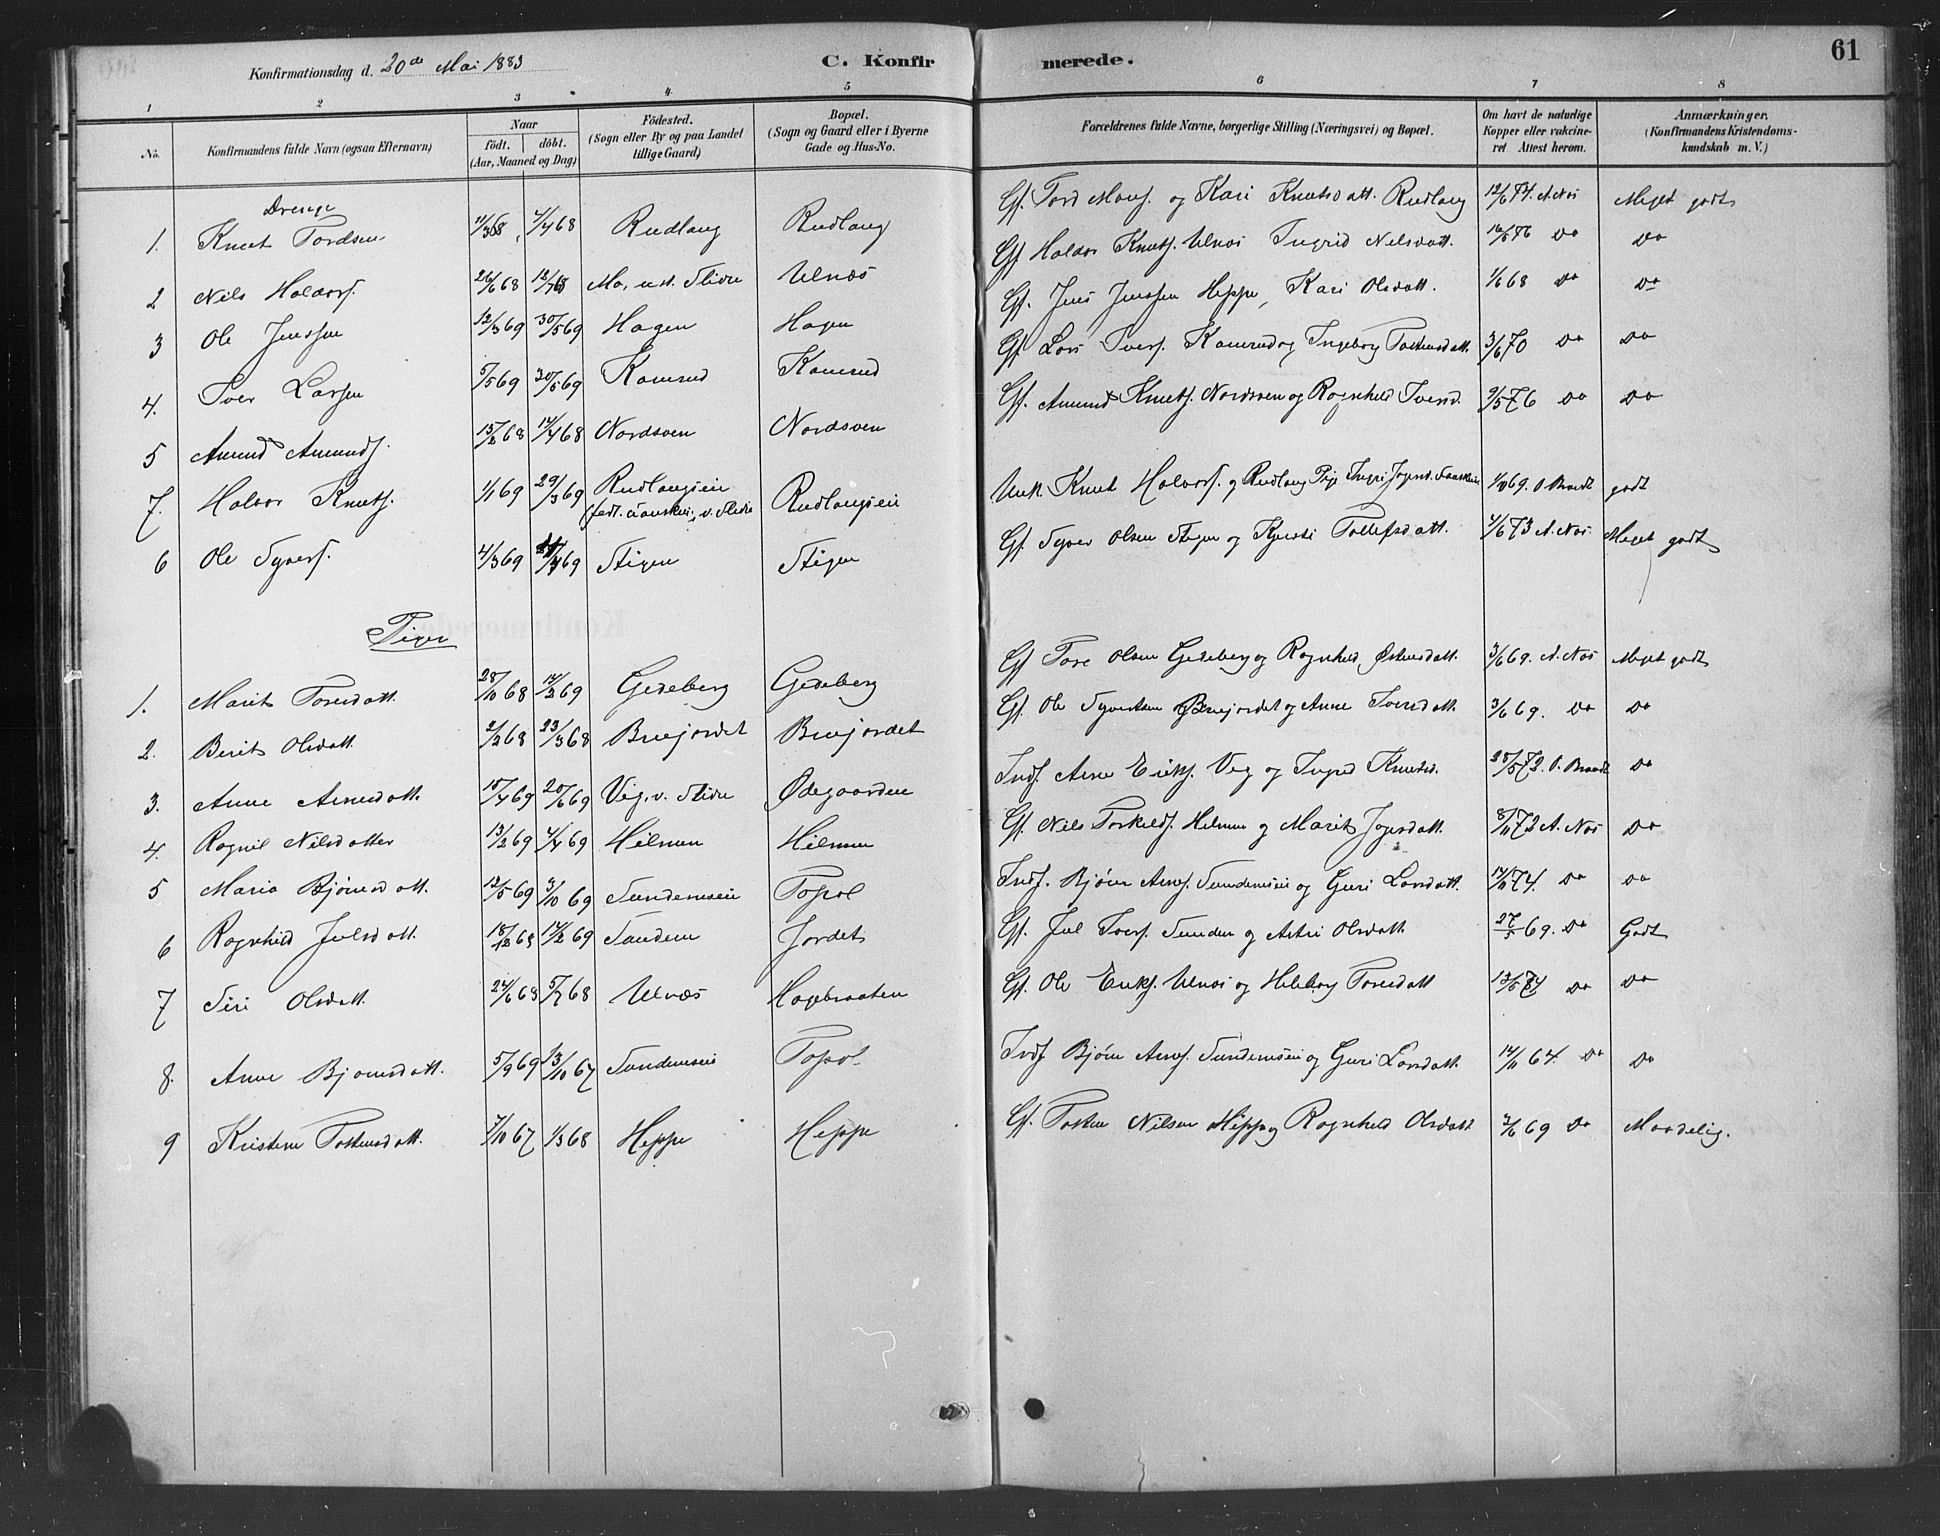 61
Konfirmationsdag d. 20de Mai 1883
C. Konfirmerede.
1 2 3 4 5 6 7 8
No.
Konfirmandens fulde Navn (ogsaa Efternavn)
Naar
födt. döbt.
(Aar, Maaned og Dag)
Födested.
(Sogn eller By og paa Landet
tillige Gaard)
Bopæl.
(Sogn og Gaard eller i Byerne
Gade og Hus-No.
Forældrenes fulde Navne, borgerlige Stilling (Næringsvei) og Bopæl.
Om havt de naturlige
Kopper eller vakcine-
ret Attest herom.
Anmærkninger.
(Konfirmandens Kristendoms-
kundskab m. V.)
Drenge
1. Knut Tordsen 4/4 68 Rudlang Rudlang Gf. Tord Mons. og Kari Knutsdatt. Rudlang 12/6 74. A. Næs Meget godt
2 Nils Haldors. 26/6 68 12/7 68 Mo, ust. Slidre Ulnæs Gf. Haldor Knuts. Ulnæs Ingrid Nilsdatt. 16/5 76 Do Do
3 Ole Jenssen 12/3 69 30/5 69 Hagen Hagen Gf. Jens Jenssen Heppe, Kari Olsdatt. 1/6 68 Do Do
4. Iver Larsen 5/5 69 30/5 69 Kamrud Kamrud Gf. Lars Ivers. Kamrud og Ingeborg Tostensdatt. 3/6 70 Do Do
5 Amund Amunds. 15/2 68 12/4 68 Nordsven Nordsven Gf. Amund Knuts. Nordsven og Ragnhild Iversd. 9/5 76 Do Do
7. Haldor Knuts. 1/1 69 29/3 69 Rudlangseie Rudlangseie Unk. Knut Haldors. og Rudlang Pige Ingri 69. O. Brandt godt
v. Slidre
6 Ole Syvers. 4/3 69 69 Stigen Stigen Gf. Syver Olsen Stigen og Kjersti Tollefsdatt. 4/6 73 A. Næs. Meget godt
Piger
1. Marit Toresdatt. 28/10 68 14/2 69 Gedeberg Gedeberg Gf. Tore Olsen Gedeberg og Ragnhild Østensdatt. 3/6 69. A. Næs Meget godt
2. Berit Olsdatt. 2/2 68 23/3 68 Bruejordet Bruejordet Gf. Ole Syvertsen Bruejordet og Anne Iversdatt. 3/6 69. Do Do
3. Anne Arnesdatt. 15/4 69 20/6 69 Veg, v. Slidre Ødegaarden Inds. Arne Eriks. Veg og Ingrid Knutsd. 28/5 72. O. Brandt Do
4. Ragnil Nilsdatter 13/2 69 4/4 69 Hilmen Hilmen Gf. Nils Torkelds. Hilmen og Marit Jogersdatt. 8/11 72 A. Næs Do
5 Maria Bjørnsdatt. 12/5 69 3/10 69 Sundemseie Topol Inds. Bjørn Arnes. Sundemseie og Guri Larsdatt. 14/11 74. Do Do
6 Ragnhild Julsdatt. 18/12 68 14/2 69 Sundem Jordet Gf. Jul Ivers. Sundem og Astri Olsdatt. 27/5 69. Do Godt
7 Siri Olsdatt. 24/6 68 5/7 68 Ulnæs Hagebraaten Gf. Ole Eriks. Ulnæs og Helleborg Toresdatt 13/5 84 Do Do
8. Anne Bjørnsdatt. 5/9 69 13/10 67 Sundemseie Topol Inds. Bjørn Arnes. Sundemseie og Guri Larsdatt. 14/11 64. Do Do
9 Kristine Tostensdatt. 7/10 67 1/3 68 Heppe Heppe Gf. Tosten Nilsen Heppe og Ragnhild Olsdatt 3/6 69 Do Maadelig.